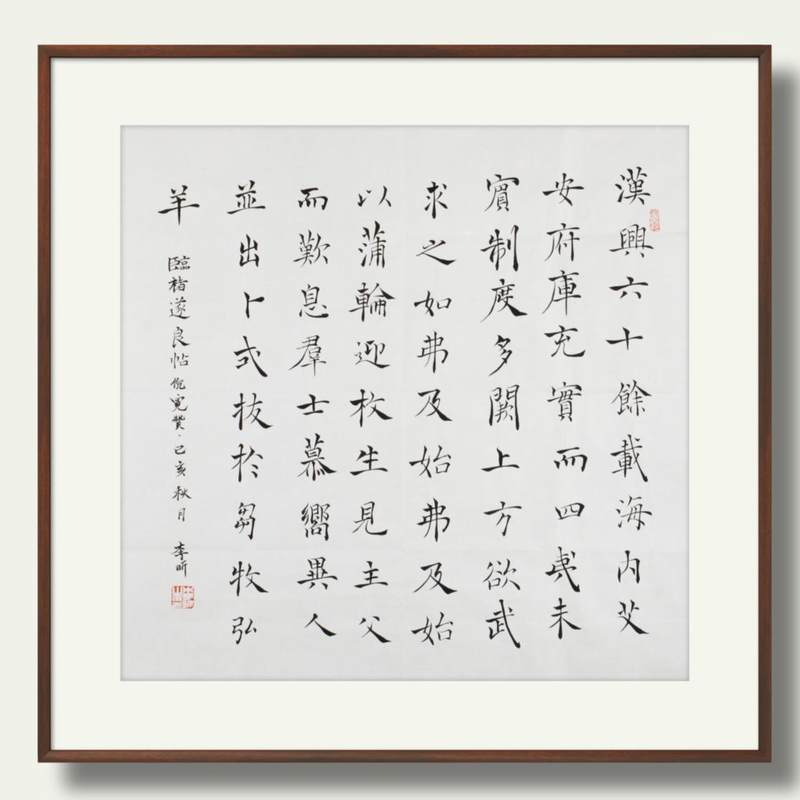 漢興六十餘載海內艾
安府庫充實而四夷未
賓制度多闕上方欲武
求之如弗及始弗及始
以蒲輪迎枚生見主父
而歎息羣士慕嚮異人
並出卜式拔於芻牧弘
羊
臨褚遂良帖倪寬贊·己亥秋月 李昕